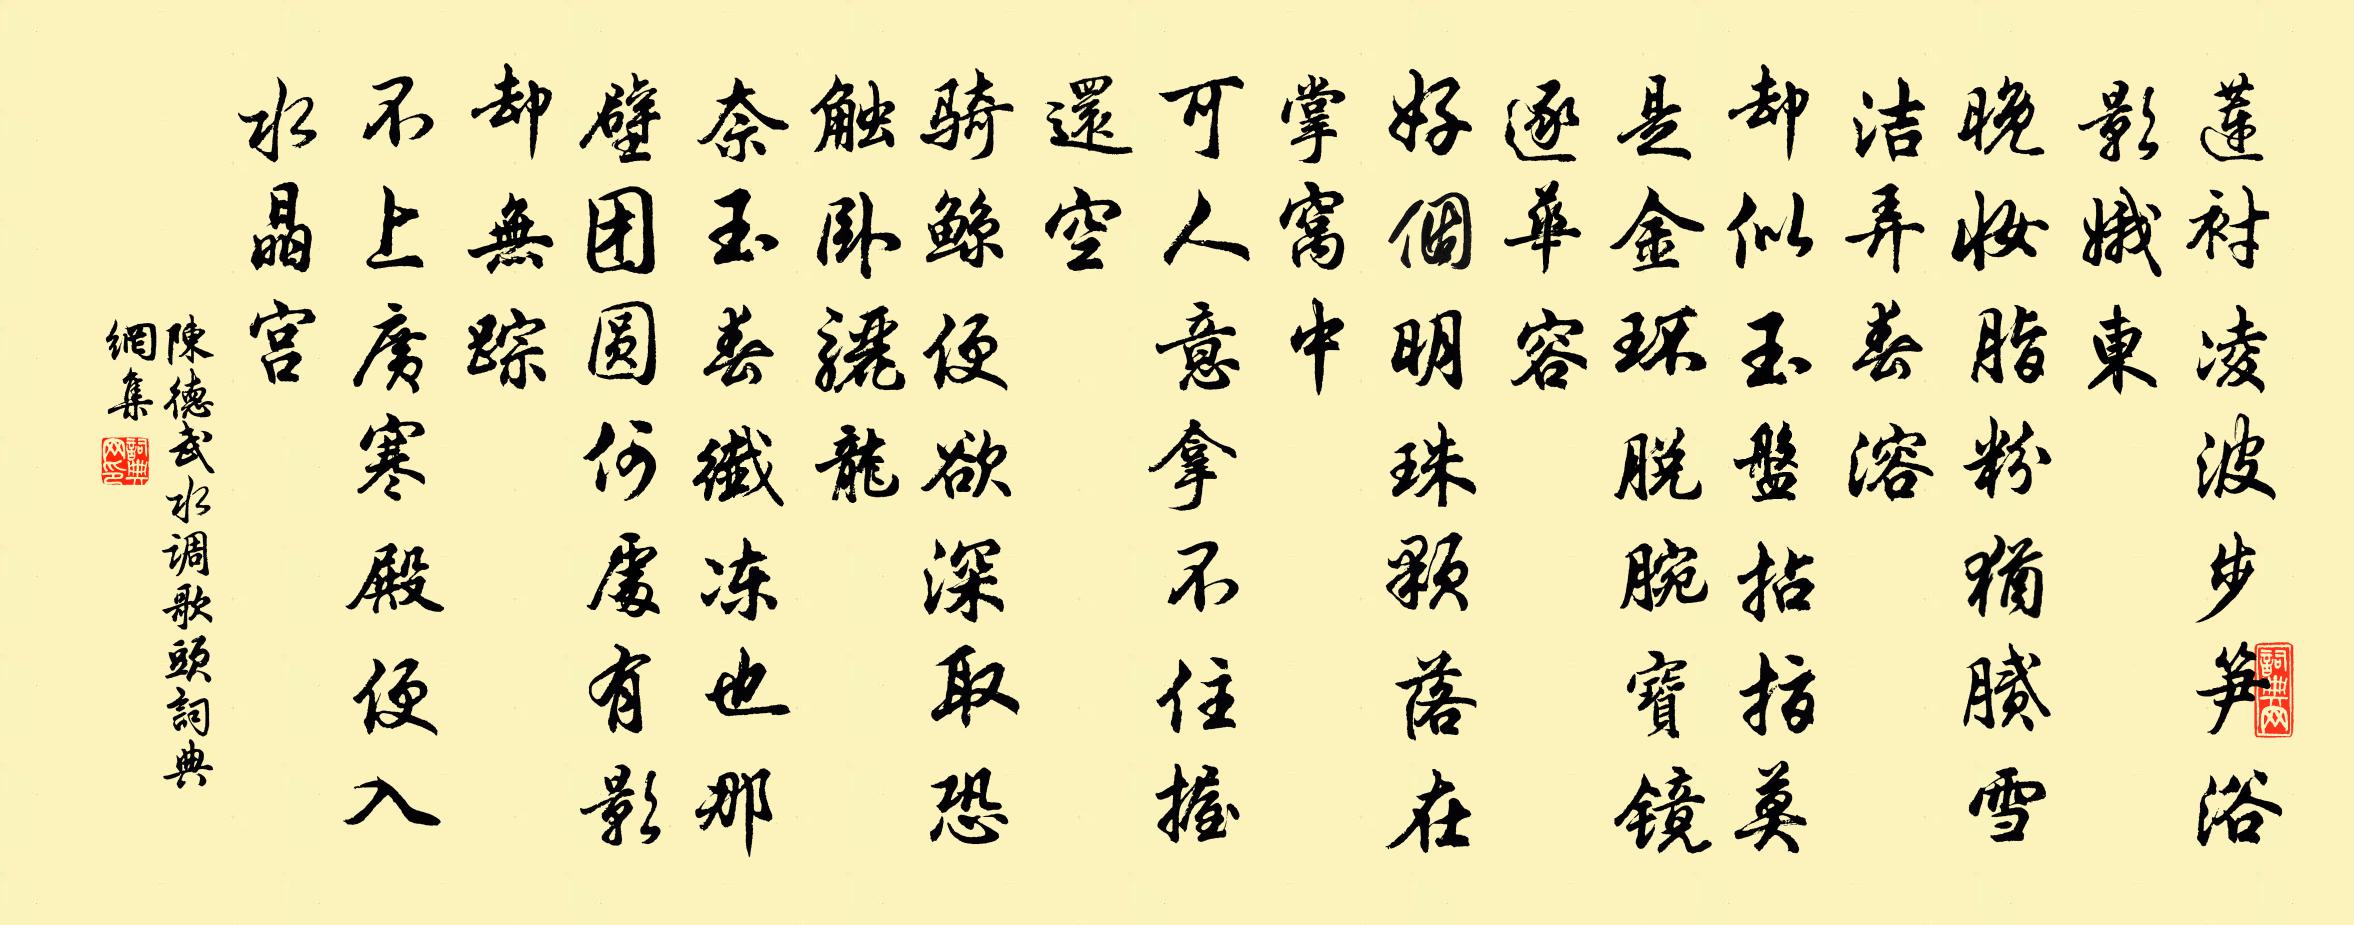 蓮衬凌波步笋浴
影娥東
晚妆脂粉猶腻雪
洁弄春溶
却似玉盤拈指莫
是金环脱腕寶镜
逐華容
好個明珠顆落在
掌窩中
可人意拿不住握
還空
騎鲸便欲深取恐
触卧驪龍
奈玉春纖冻也那
壁团圆何處有影
却無踪
不上廣寒殿便入
水晶宫
陳德武水调歌頭詞典
網集
詞典網
詞典網印